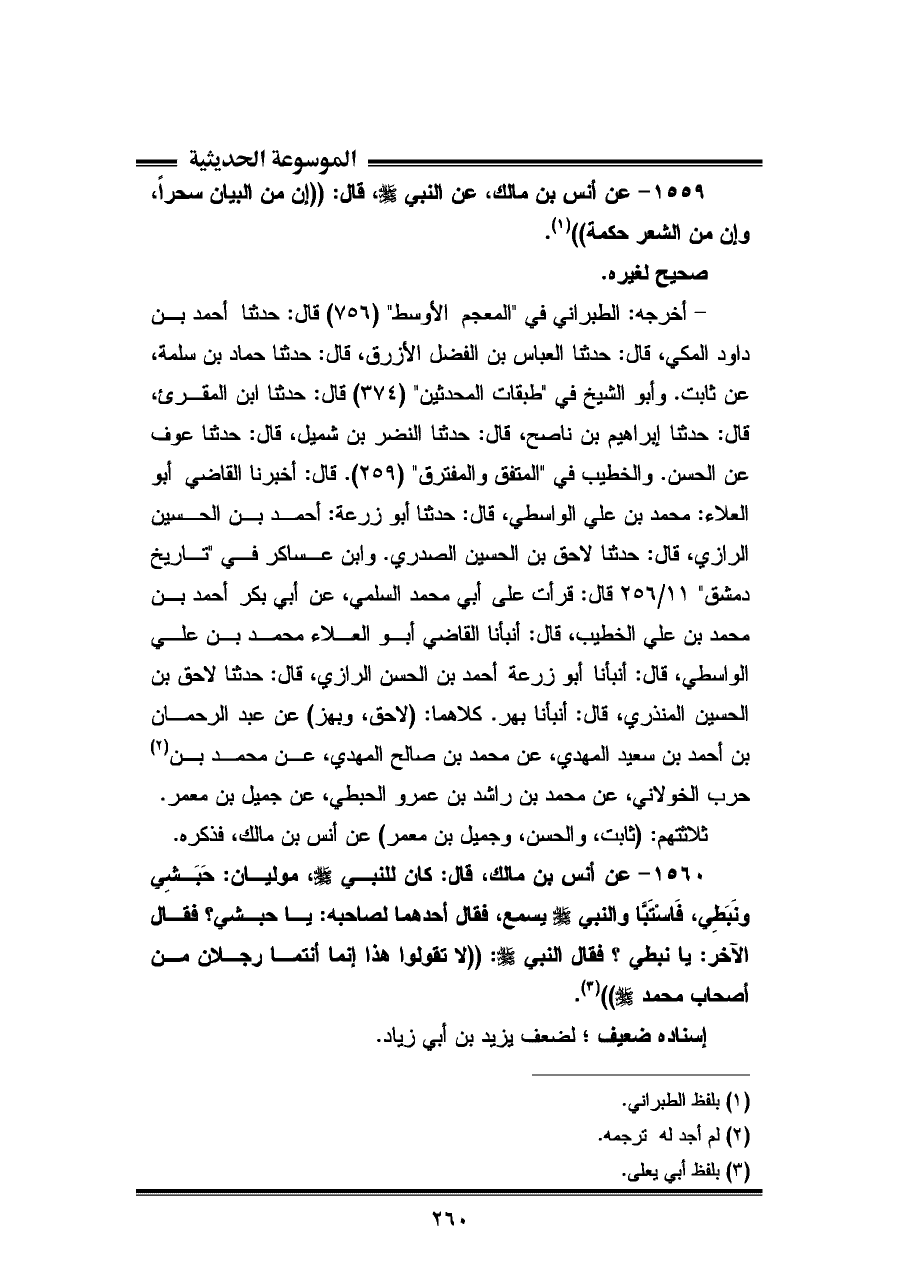 الموسوعة الحديثية
١٥٥٩- عن أنس بن مالك، عن النبي ﷺ، قال: ((إن من البيان سحراً،
وإن من الشعر حكمة))(١).
صحيح لغيره.
- أخرجه: الطبراني في "المعجم الأوسط" (٧٥٦) قال: حدثنا أحمد بن
داود المكي، قال: حدثنا العباس بن الفضل الأزرق، قال: حدثنا حماد بن سلمة،
عن ثابت. وأبو الشيخ في "طبقات المحدثين" (٣٧٤) قال: حدثنا ابن المقرئ،
قال: حدثنا إبراهيم بن ناصح، قال: حدثنا النضر بن شميل، قال: حدثنا عوف
عن الحسن. والخطيب في "المتفق والمفترق" (٢٥٩). قال: أخبرنا القاضي أبو
العلاء: محمد بن علي الواسطي، قال: حدثنا أبو زرعة: أحمد بن الحسين
الرازي، قال: حدثنا لاحق بن الحسين الصدري. وابن عساكر في "تاريخ
دمشق" ٢٥٦/١١ قال: قرأت على أبي محمد السلمي، عن أبي بكر أحمد بن
محمد بن علي الخطيب، قال: أنبأنا القاضي أبو العلاء محمد بن علي
الواسطي، قال: أنبأنا أبو زرعة أحمد بن الحسن الرازي، قال: حدثنا لاحق بن
الحسين المنذري، قال: أنبأنا بهر. كلاهما: (لاحق، وبهز) عن عبد الرحمان
بن أحمد بن سعيد المهدي، عن محمد بن صالح المهدي، عن محمد بن(٢)
حرب الخولاني، عن محمد بن راشد بن عمرو الحبطي، عن جميل بن معمر.
ثلاثتهم: (ثابت، والحسن، وجميل بن معمر) عن أنس بن مالك، فذكره.
١٥٦٠- عن أنس بن مالك، قال: كان للنبي ﷺ، موليان: حَبَشي
ونَبَطِي، فَاسْتَبَّا والنبي ﷺ يسمع، فقال أحدهما لصاحبه: يا حبشي؟ فقال
الآخر: يا نبطي ؟ فقال النبي ﷺ: ((لا تقولوا هذا إنما أنتما رجلان من
أصحاب محمد ﷺ))(٣).
إسناده ضعيف ؛ لضعف يزيد بن أبي زياد.
(١) بلفظ الطبراني.
(٢) لم أجد له ترجمه.
(٣) بلفظ أبي يعلى.
٢٦٠